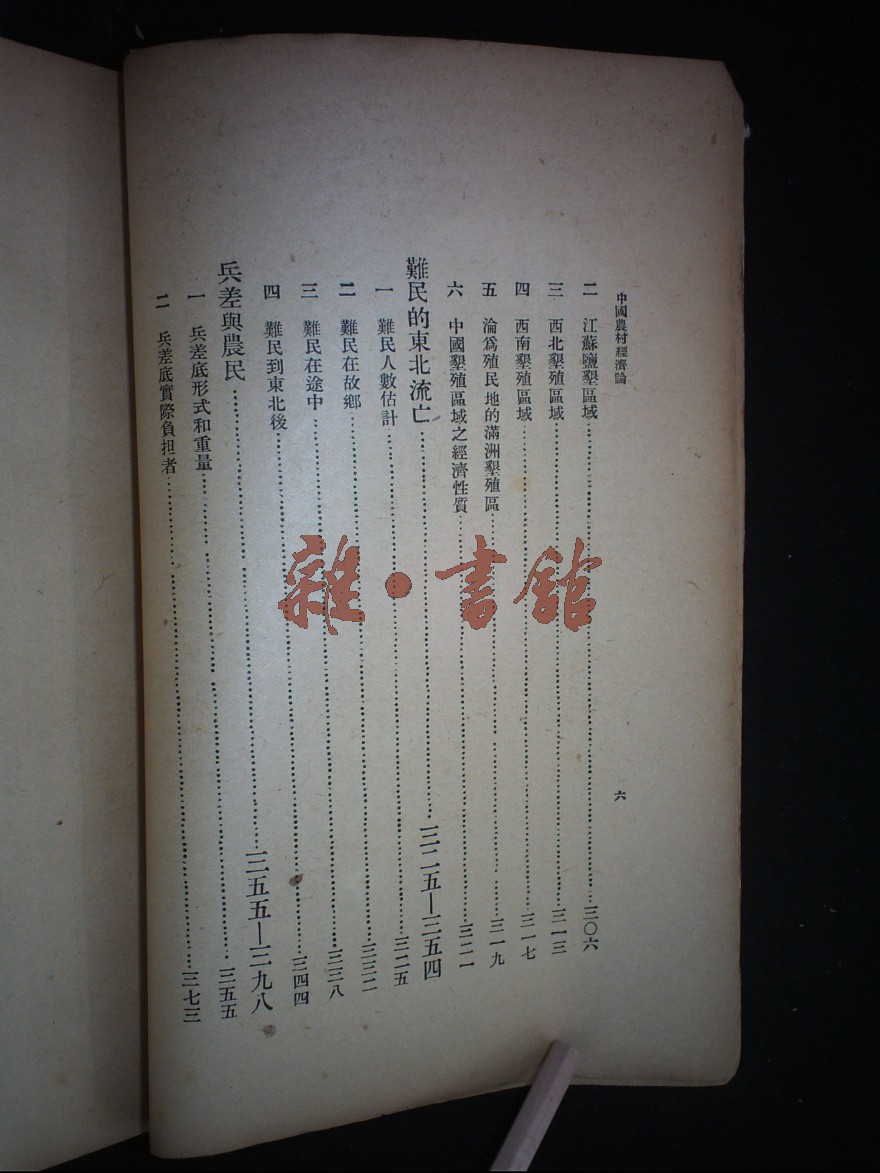 中國農村經濟論
六
二 江蘇鹽墾區域……三〇六
三 西北墾殖區域……三一三
四 西南墾殖區域……三一七
五 淪爲殖民地的滿洲墾殖區……三一九
六 中國墾殖區域之經濟性質……三二一
難民的東北流亡……三二五—三五四
一 難民人數估計……三二五
二 難民在故鄉……三三二
三 難民在途中……三三八
四 難民到東北後……三四四
兵差與農民……三五五—三九八
一 兵差底形式和重量……三五五
二 兵差底實際負担者……三七三
雜·書館